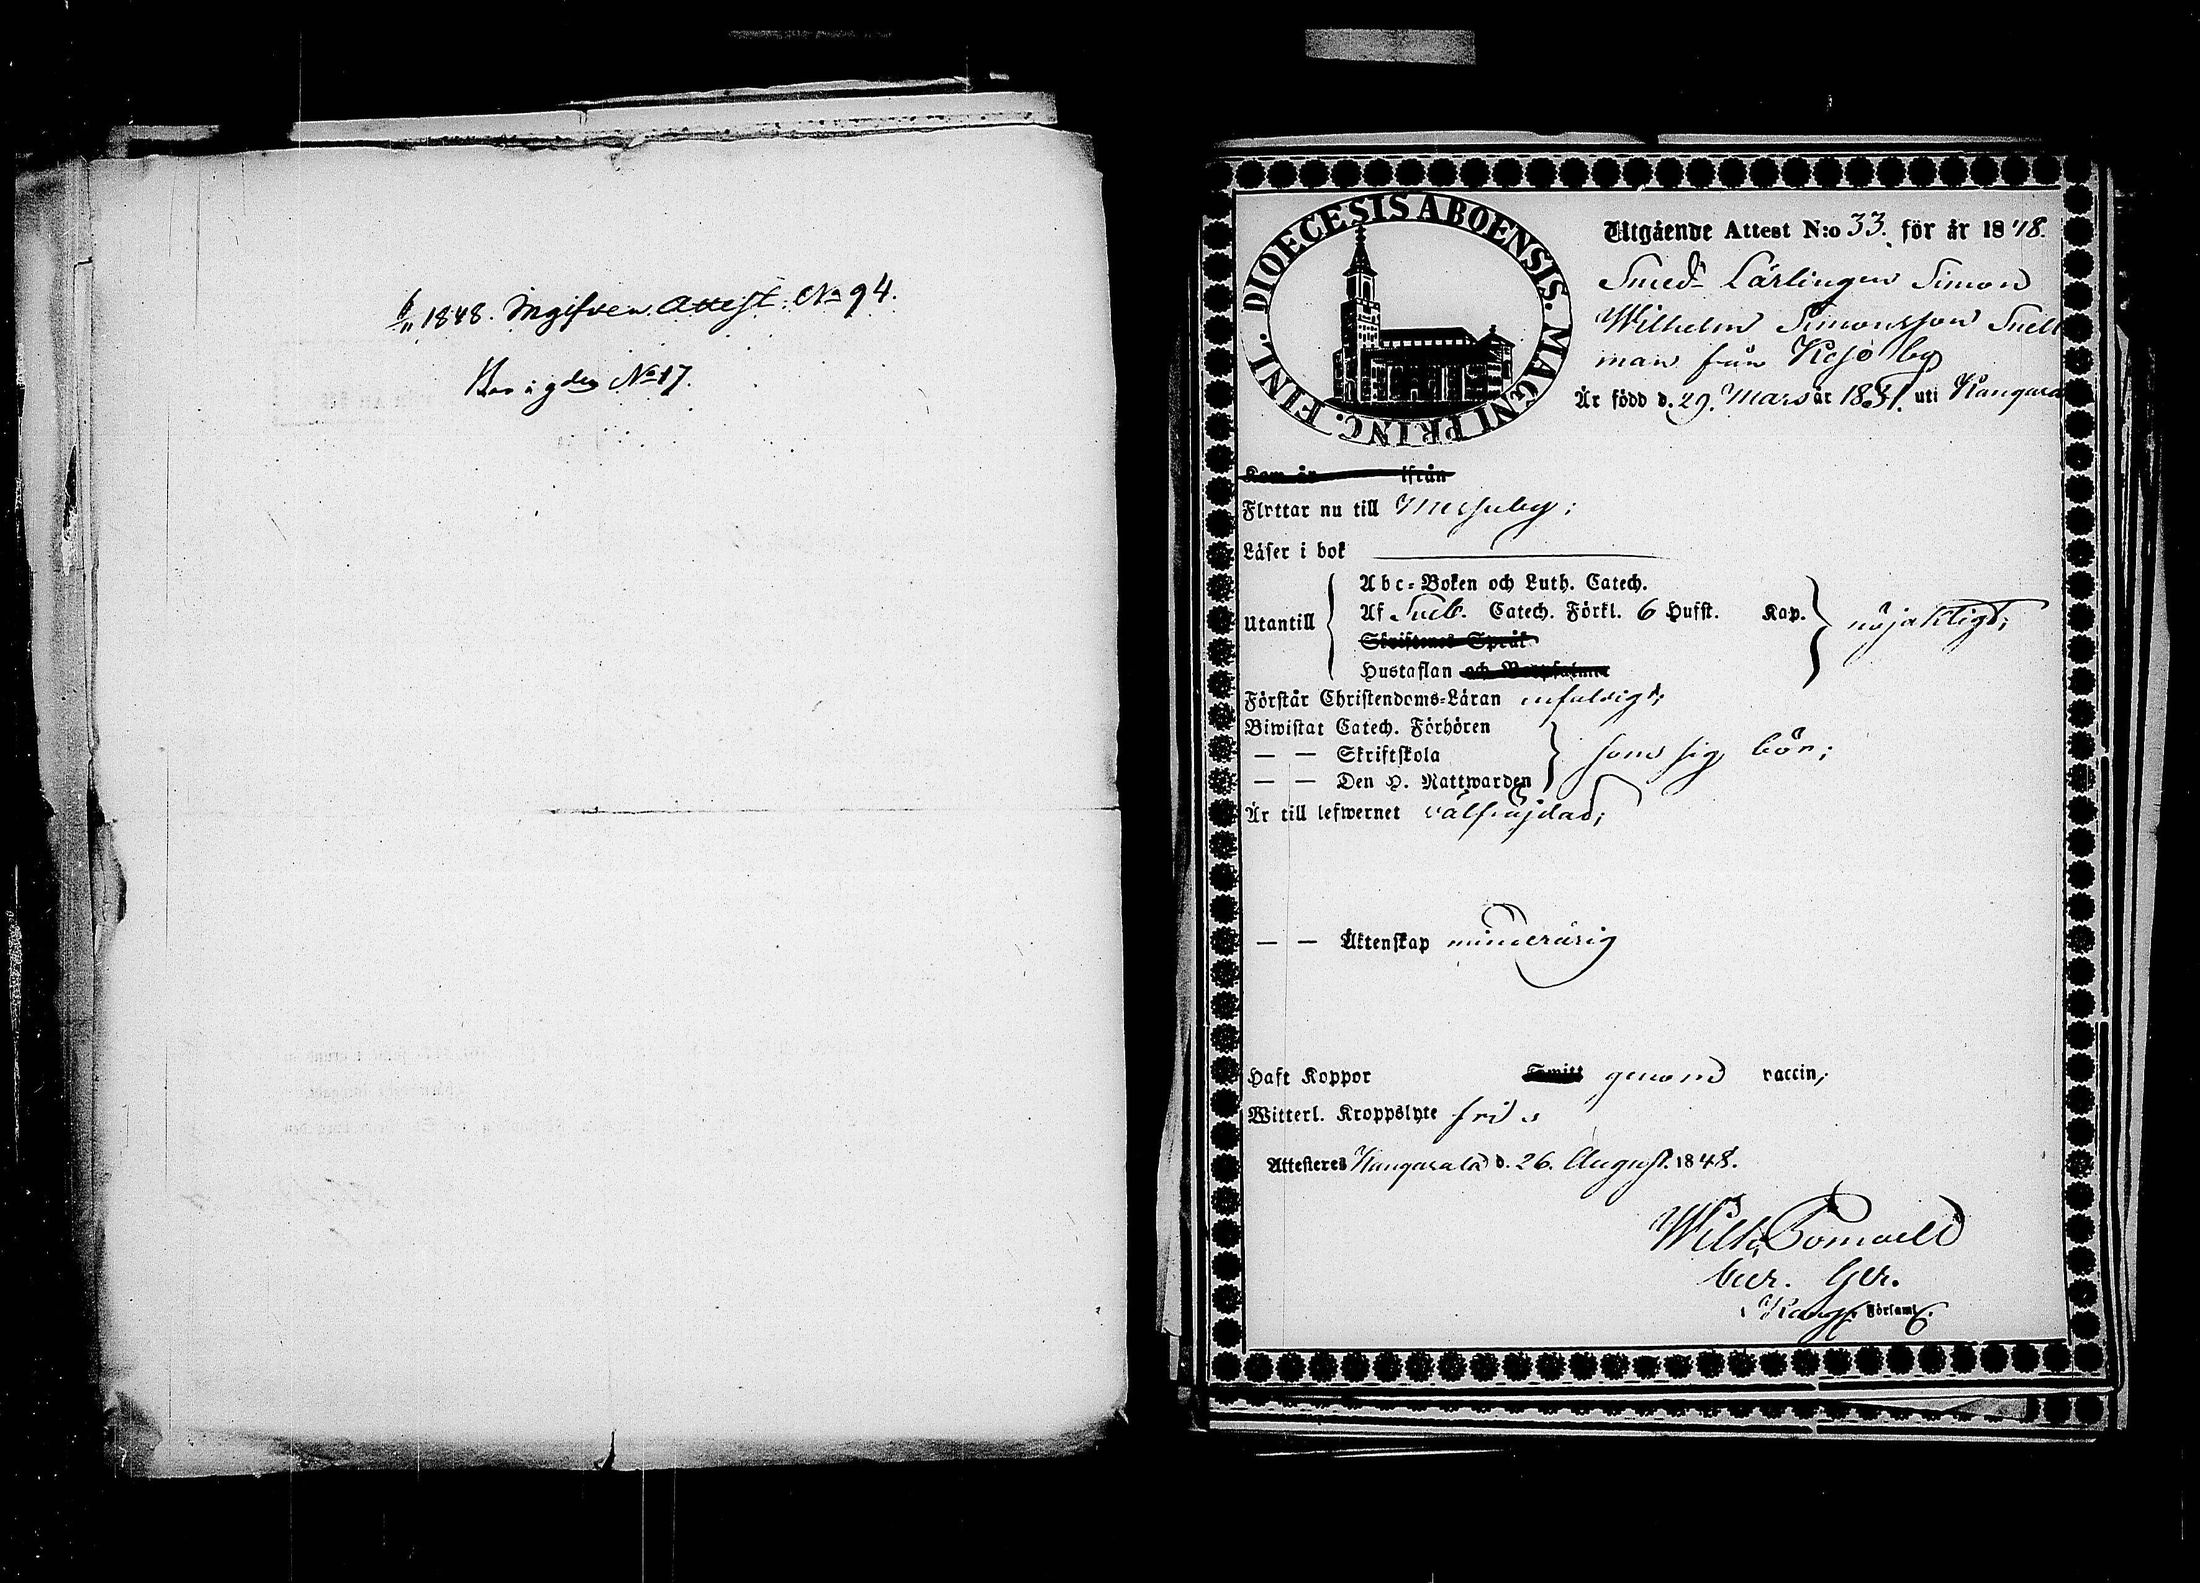 6/11 1848. Ingifven Attest. No 94.
No 17.
DIOECESIS ABOENSIS. MAGNI PRINC. FINL.
Utgående Attest N:o 33. för år 1848.
Smed Lärlingen Simon
Wilhelm Simonsson Snell
man från Kesö by
Är född d. 29. Mars år 1831. uti Kangasa
Kom år ifrån
Flyttar nu till Messuby;
Läser i bok
Utantill
Abc-Boken och Luth. Catech.
Af Sveb. Catech. Förkl. 6 Hufst. Kap.
Skriftenes Språk
Hustaflan och Botpsalmer
nöjaktigt;
Förstår Christendoms-Läran enfaldigt;
Biwistat Catech. Förhören
— — Skriftskola
— — Den H. Nattwarden
som sig bör;
Är till lefwernet välfräjdad;
— — Äktenskap minderårig
Haft Koppor genom vaccin;
Witterl. Kroppslyte fri
Attesteras Kangasala d. 26. August. 1848.
Wilh.
i Kang. Församl.